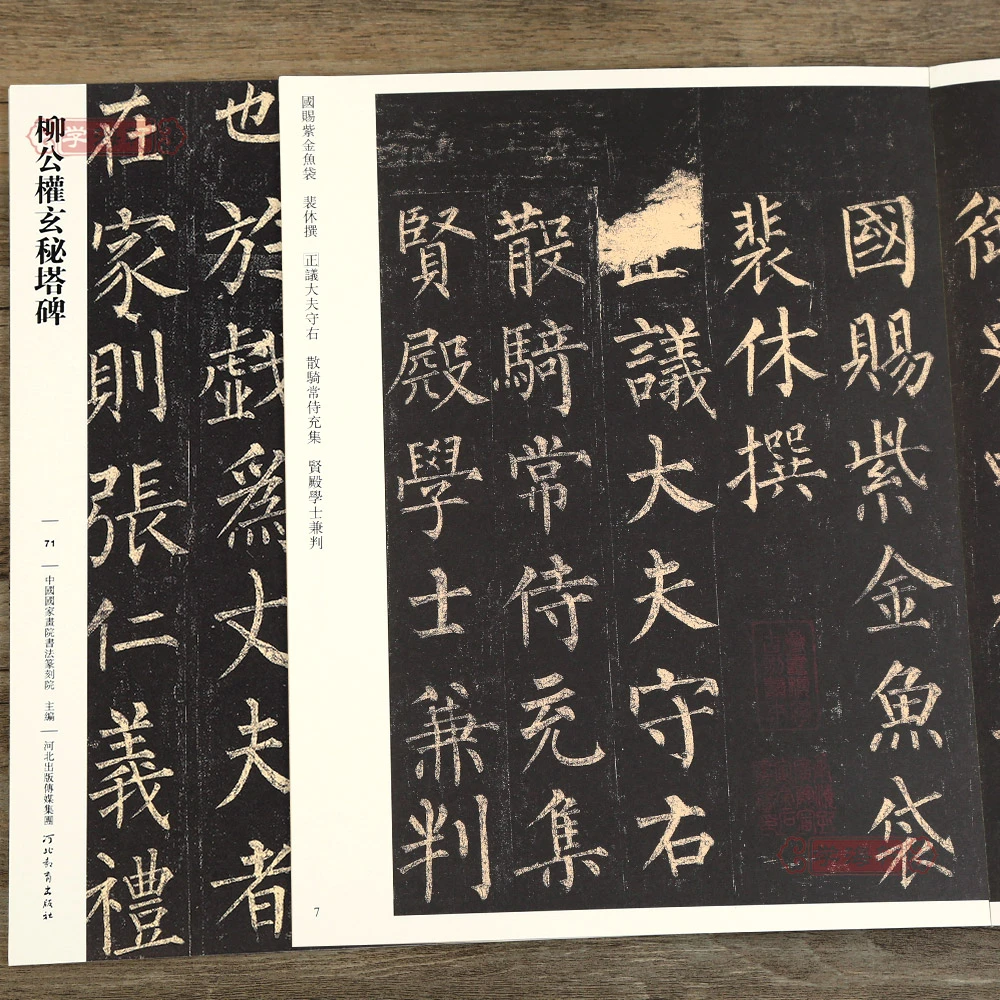 國賜紫金魚袋
裴休撰
正議大夫守右
散騎常侍充集
賢殿學士兼判
國賜紫金魚袋 裴休撰 正議大夫守右 散騎常侍充集 賢殿學士兼判
7
也於戲為丈夫者
在家則張仁義禮
柳公權玄秘塔碑
71
中國國家畫院書法篆刻院 主編
河北出版傳媒集團
河北教育出版社